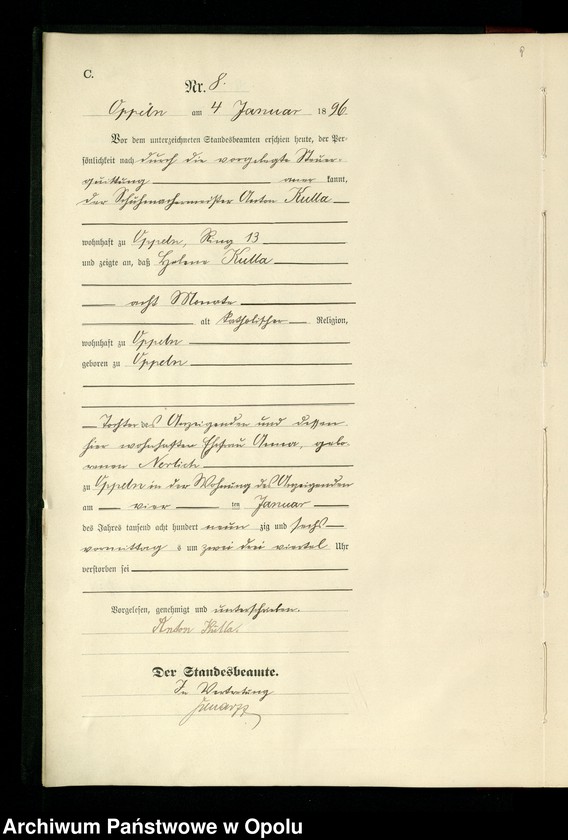 8
C.
Nr. 8.
Oppeln am 4 Januar 1896
Vor dem unterzeichneten Standesbeamten erschien heute, der Per-
sönlichkeit nach durch die vorgelegte Steuer-
quittung aner kannt,
der Schuhmachermeister Anton Kulla
wohnhaft zu Oppeln, Ring 13
und zeigte an, daß Helene Kulla
acht Monate
alt katholischer Religion,
wohnhaft zu Oppeln
geboren zu Oppeln
Tochter des Anzeigenden und dessen
hier wohnhaften Ehefrau Anna, gebo-
renen
zu Oppeln in der Wohnung des Anzeigenden
am vier ten Januar
des Jahres tausend acht hundert neun zig und sechs
vormittag s um zwei drei viertel Uhr
verstorben sei
Vorgelesen, genehmigt und unterschrieben.
Anton Kulla.
Der Standesbeamte.
In Vertretung
Archiwum Państwowe w Opolu